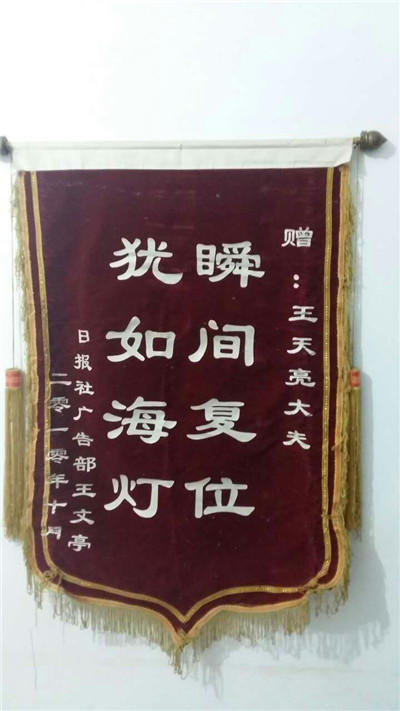 赠：王天亮大夫
瞬间复位
犹如海灯
日报社广告部王文亭
二零一零年十月